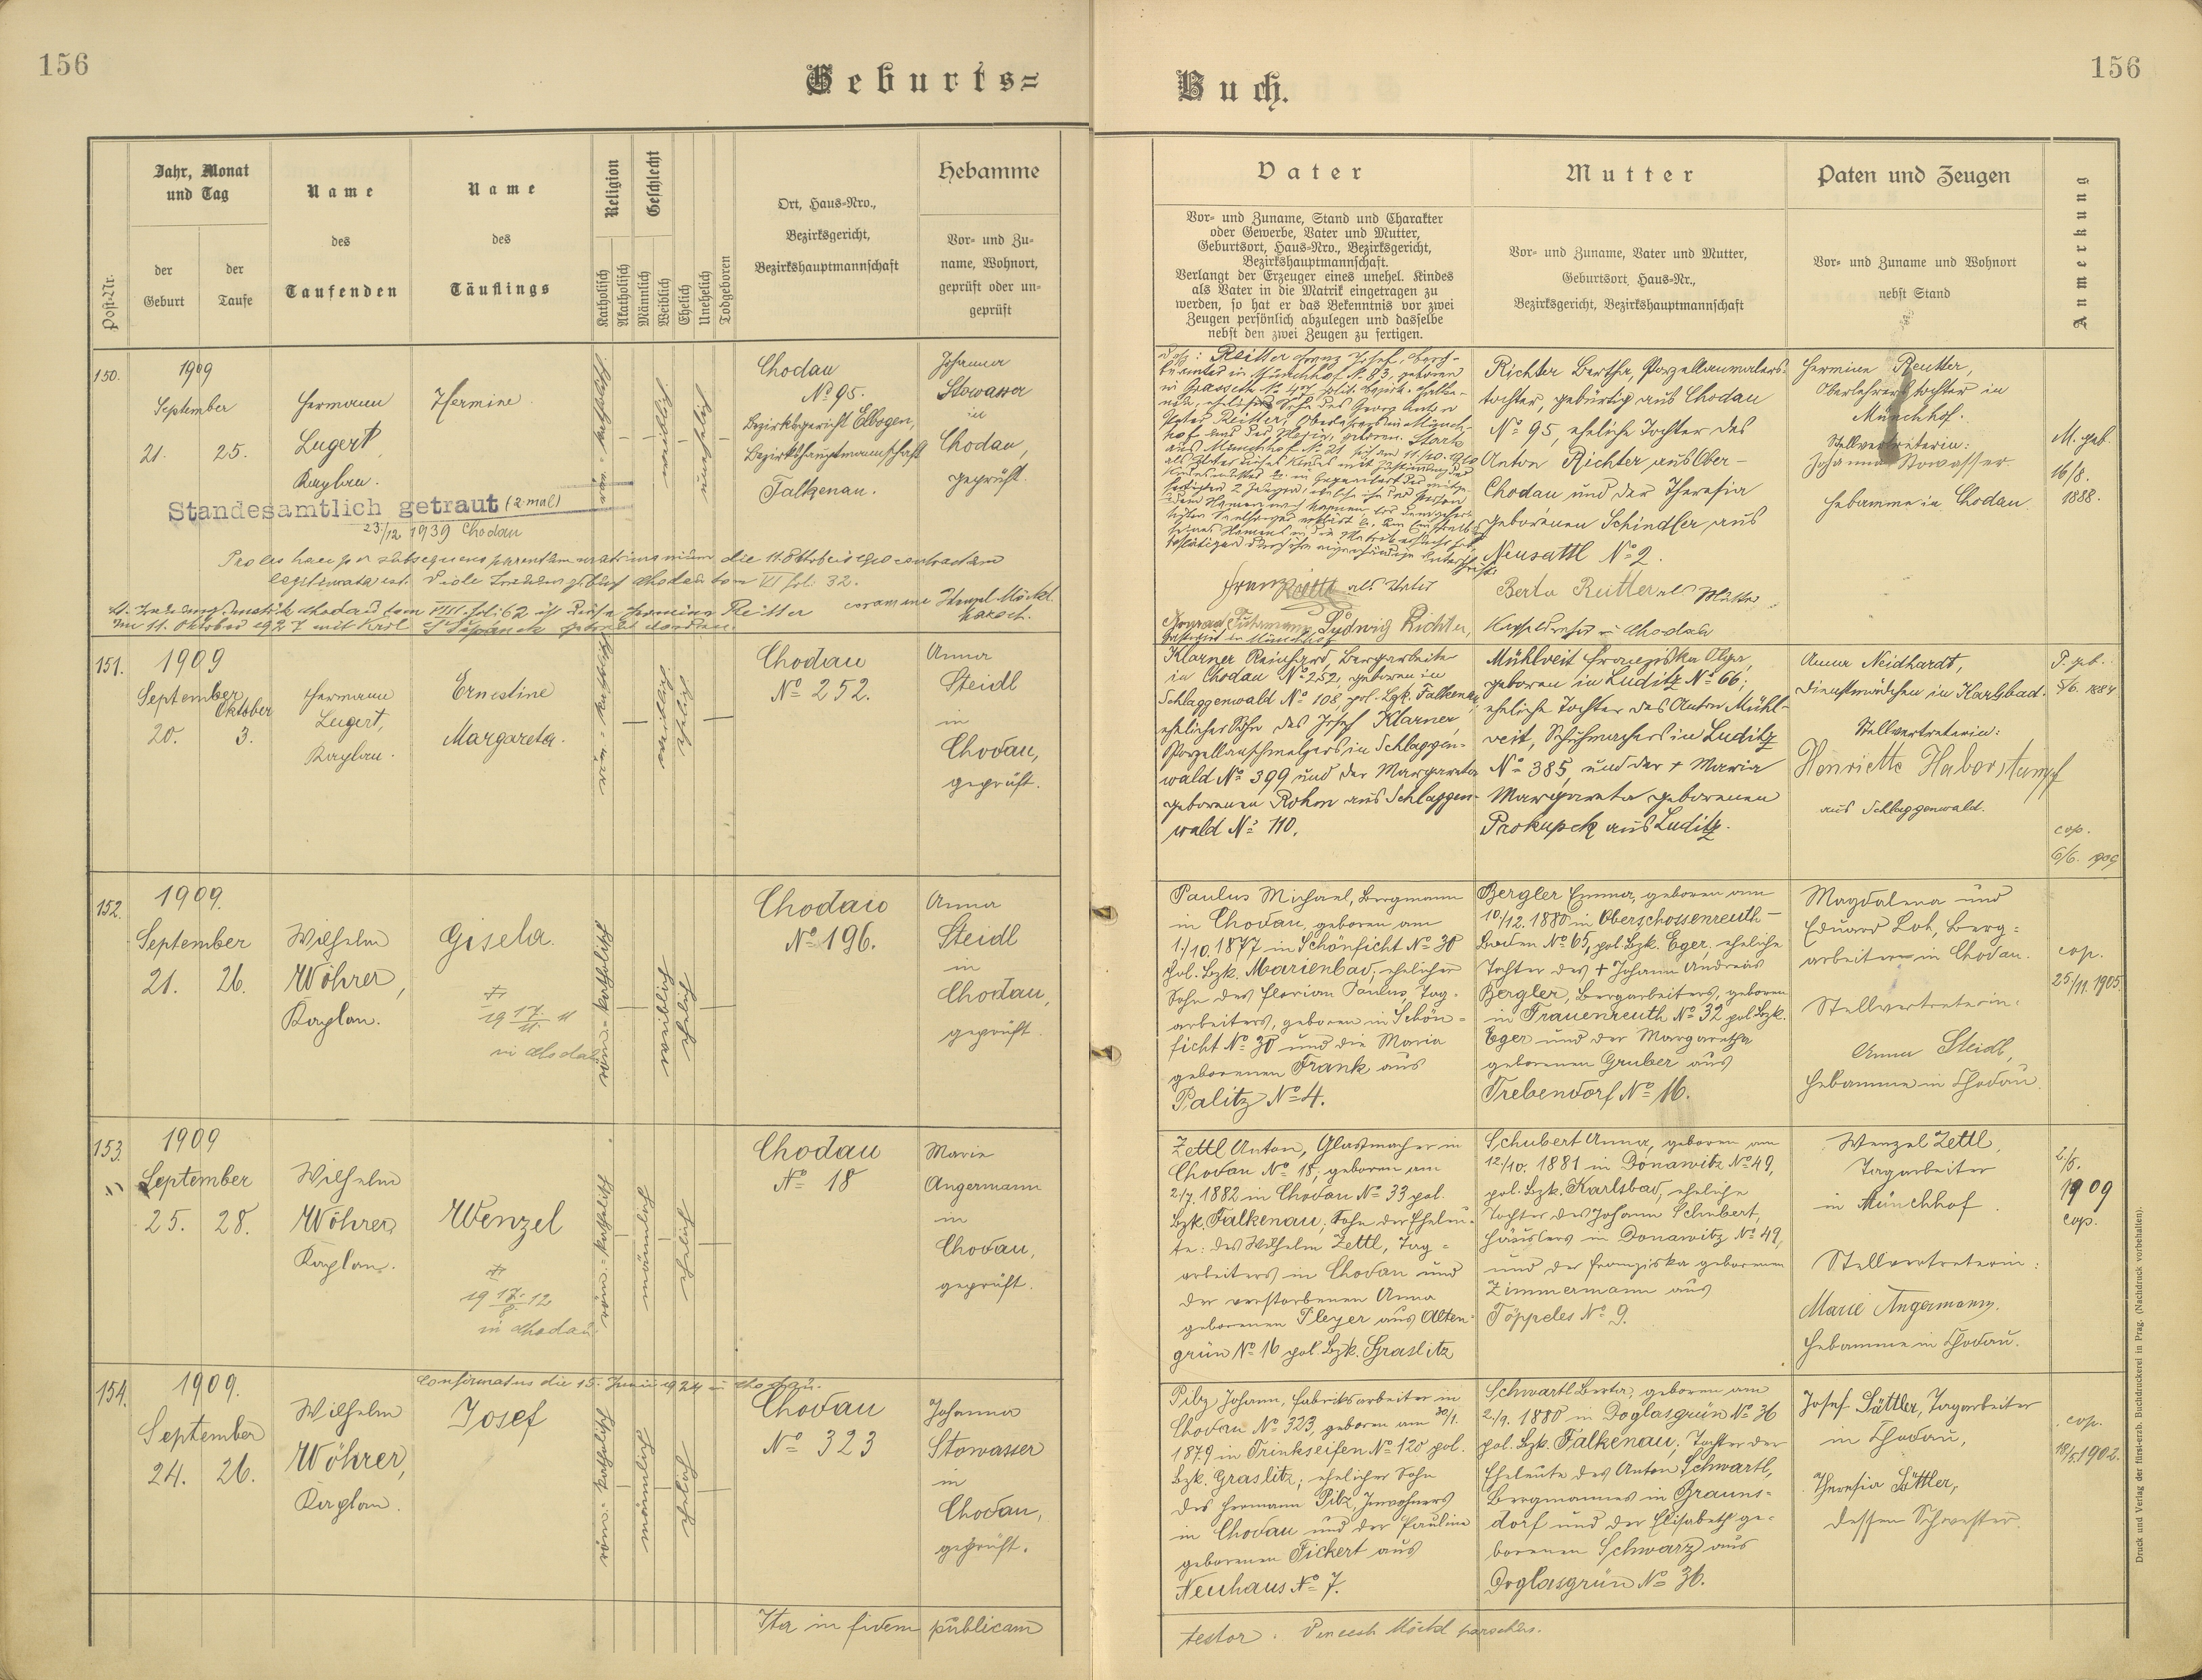 156
Geburts=
Buch.
156
Post-Nr.
Jahr, Monat
und Tag
der
Geburt
der
Taufe
Name
des
Taufenden
Name
des
Täuflings
Religion
Katholisch
Akatholisch
Geschlecht
Männlich
Weiblich
Ehelich
Unehelich
Todgeboren
Ort, Haus-Nro.,
Bezirksgericht,
Bezirkshauptmannschaft
Hebamme
Vor- und Zu-
name, Wohnort,
geprüft oder un-
geprüft
Vater
Vor- und Zuname, Stand und Charakter
oder Gewerbe, Vater und Mutter,
Geburtsort, Haus-Nro., Bezirksgericht,
Bezirkshauptmannschaft.
Verlangt der Erzeuger eines unehel. Kindes
als Vater in die Matrik eingetragen zu
werden, so hat er das Bekenntnis vor zwei
Zeugen persönlich abzulegen und dasselbe
nebst den zwei Zeugen zu fertigen.
Mutter
Vor- und Zuname, Vater und Mutter,
Geburtsort, Haus-Nr.,
Bezirksgericht, Bezirkshauptmannschaft
Paten und Zeugen
Vor- und Zuname und Wohnort
nebst Stand
Anmerkung
150.
1909
September
21.
25.
Hermann
Lugert,
Kaplan.
Hermine.
röm.-katholisch
weiblich
unehelich
Chodau
No 95.
Bezirksgericht Elbogen,
Bezirkshauptmannschaft
Falkenau.
Johanna
Stowasser
in
Chodau,
geprüft.
Standesamtlich getraut (2 mal)
23/12 1939 Chodau
Proles haec per subsequens parentum matrimonium die 11. Oktobris 1910 contractum
legitimata est.
Reitter Franz Josef,
in Münchhof No 83, geboren
Franz Reitter als Vater
Ludwig Richter,
Richter Bertha, Porzellanmalers-
tochter, gebürtig aus Chodau
No 95, eheliche Tochter des
Anton Richter aus Ober-
Chodau und der Theresia
geborenen Schindler aus
Neusattl No 2.
Berta Reitter als Mutter
in Chodau
Hermine Reutter,
Oberlehrerstochter in
Münchhof.
Stellvertreterin:
Johanna Stowasser
Hebamme in Chodau.
M. geb.
16/8.
1888.
151.
1909
September
Oktober
20.
3.
Hermann
Lugert,
Kaplan.
Ernestine
Margareta.
röm.-katholisch
weiblich
ehelich
Chodau
No 252.
Anna
Steidl
in
Chodau,
geprüft.
Klarner Reinhard, Bergarbeiter
in Chodau No 252, geboren in
Schlaggenwald No 108, pol. Bzk. Falkenau,
ehelicher Sohn des Josef Klarner,
Porzellanschmelzers in Schlaggen-
wald No 399 und der Margareta
geborenen Rohm aus Schlaggen-
wald No 110.
Mühlveit Franziska Olga,
geboren in Luditz No 66;
eheliche Tochter des Anton Mühl-
veit, Schuhmachers in Luditz
No 385, und der + Maria
Margareta geborenen
Prokupek aus Luditz.
Anna Neidhardt,
Dienstmädchen in Karlsbad.
Stellvertreterin:
Henriette Haberstumpf
aus Schlaggenwald.
cop.
6/6. 1909
152.
1909.
September
21.
26.
Wilhelm
Wöhrer,
Kaplan.
Gisela.
in Chodau
röm.-katholisch
weiblich
ehelich
Chodau
No 196.
Anna
Steidl
in
Chodau,
geprüft.
Paulus Michael, Bergmann
in Chodau, geboren am
1./10. 1877 in Schönficht No 30
pol. Bzk. Marienbad, ehelicher
Sohn des Florian Paulus, Tag-
arbeiters, geboren in Schön-
ficht No 30 und die Maria
geborenen Frank aus
Palitz No 4.
Bergler Emma, geboren am
10./12. 1880 in Oberschossenreuth-
Baden No 65, pol. Bzk. Eger, eheliche
Tochter des + Johann Andreas
Bergler, Bergarbeiters, geboren
in Frauenreuth No 32 pol. Bzk.
Eger und der Margaretha
geborenen Gruber aus
Trebendorf No 16.
Magdalena und
Eduard Loh, Berg-
arbeiter in Chodau.
Stellvertreterin:
Anna Steidl,
Hebamme in Chodau
cop.
25/11. 1905.
153.
1909
September
25.
28.
Wilhelm
Wöhrer
Kaplan.
Wenzel
in Chodau
röm.-katholisch
männlich
ehelich
Chodau
No 18
Marie
Angermann
in
Chodau,
geprüft.
Zettl Anton, Glasmacher in
Chodau No 18, geboren am
2./7. 1882 in Chodau No 33 pol.
Bzk. Falkenau, Sohn der Eheleu-
te: des Wilhelm Zettl, Tag-
arbeiters in Chodau und
der verstorbenen Anna
geborenen Pleyer aus Alten-
grün No 16 pol. Bzk. Graslitz
Schubert Anna, geboren am
12./10. 1881 in Donawitz No 49,
pol. Bzk. Karlsbad, eheliche
Tochter des Johann Schubert,
Häuslers in Donawitz No 49,
und der Franziska geborenen
Zimmermann aus
Töppeles No 9.
Wenzel Zettl,
Tagarbeiter
in Münchhof.
Stellvertreterin:
Marie Angermann,
Hebamme in Chodau.
2/5.
1909
cop.
154.
1909.
September
24.
26.
Wilhelm
Wöhrer,
Kaplan.
Confirmatus die 15. Junii 1924 in Chodau.
Josef
röm.-katholisch
männlich
ehelich
Chodau
No 323
Johanna
Stowasser
in
Chodau,
geprüft.
Pilz Johann, Fabriksarbeiter in
Chodau No 323, geboren am 30/1.
1879 in Trinkseifen No 120 pol.
Bzk. Graslitz; ehelicher Sohn
des Hermann Pilz, Inwohners
in Chodau und der Pauline
geborenen Fickert aus
Neuhaus No 7.
Schwartl Berta, geboren am
2./9. 1880 in Doglasgrün No 36
pol. Bzk. Falkenau, Tochter der
Eheleute des Anton Schwartl,
Bergmannes in Grauns-
dorf und der Elisabeth ge-
borenen Schwarz aus
Doglasgrün No 36.
Josef Sättler, Tagarbeiter
in Chodau,
Theresia Sättler,
dessen Schwester.
cop.
18/5. 1902.
Ita in fidem publicam
testor. Vincenz Möckl parochus.
Druck und Verlag der fürst-erzb. Buchdruckerei in Prag. (Nachdruck vorbehalten).